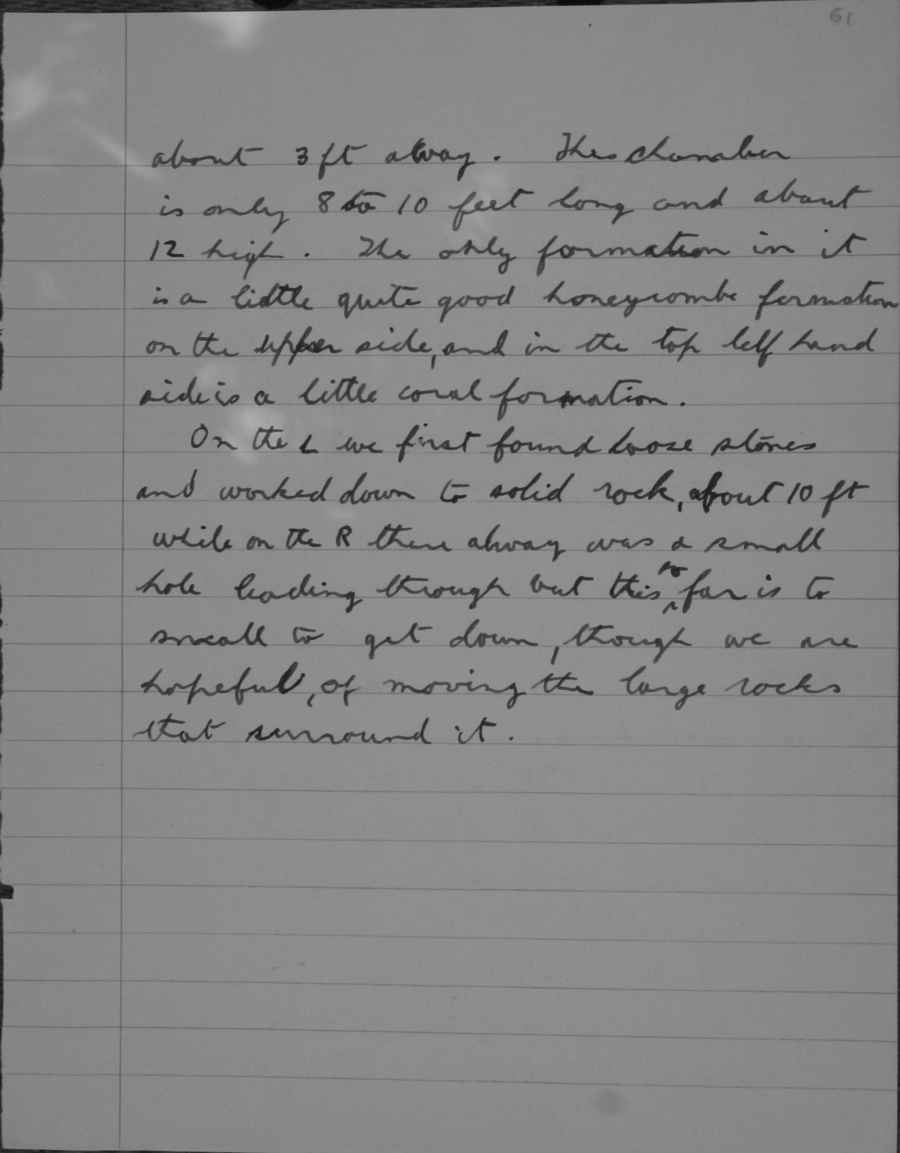 61
about 3 ft alway. This chamaber
is only 8 to 10 feet long and about
12 high. The only formation in it
is a little quite good honeycombe formation
on the upper side, and in the top left hand
side is a little coral formation.
On the L we first found loose stones
and worked down to solid rock, about 10 ft
while on the R there alway was a small
hole leading through but this so far is to
small to get down, though we are
hopeful, of moving the large rocks
that surround it.